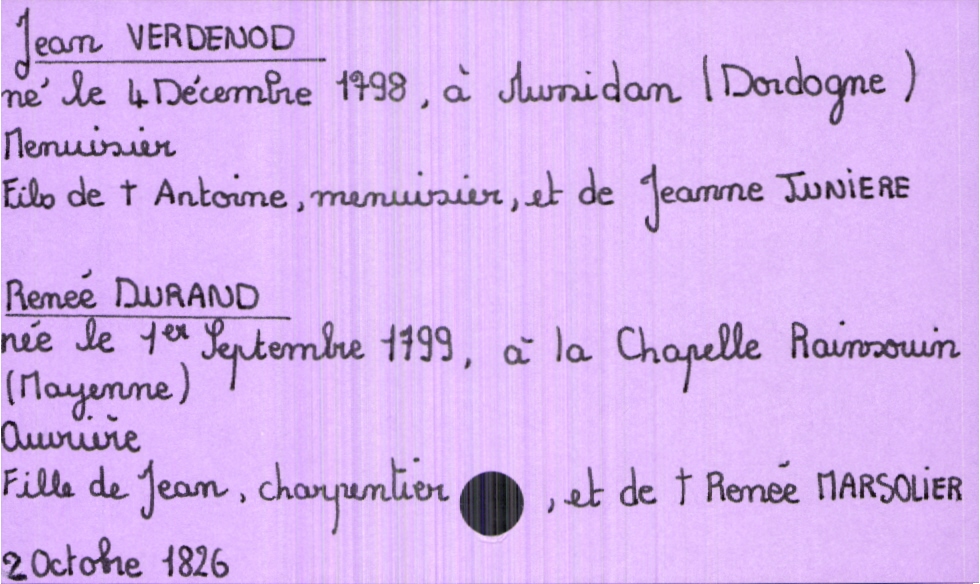 Jean VERDENOD
né le 4 Décembre 1798, à Mussidan (Dordogne)
Menuisier
Fils de † Antoine, menuisier, et de Jeanne JUNIERE
Renée DURAND
née le 1er Septembre 1799, à la Chapelle Rainsouin
(Mayenne)
Ouvrière
Fille de Jean, charpentier, et de † Renée MARSOLIER
2 Octobre 1826